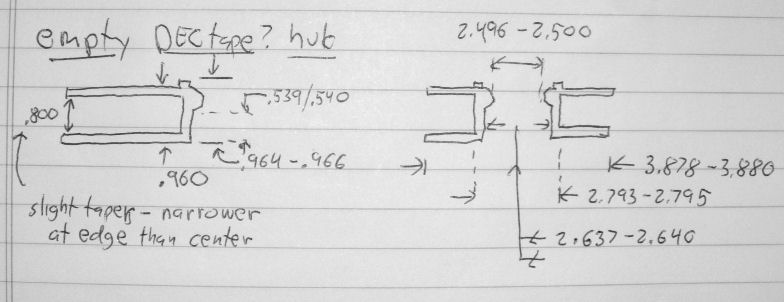 empty DECtape? hub
2.496 - 2.500
.539/.540
.800
.964 - .966
.960
3.878 - 3.880
2.793 - 2.795
slight taper - narrower
at edge than center
2.637 - 2.640